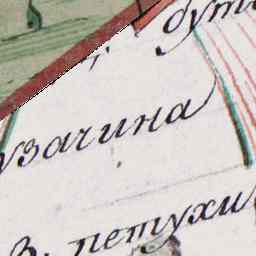 бут
узачина
В. петухи